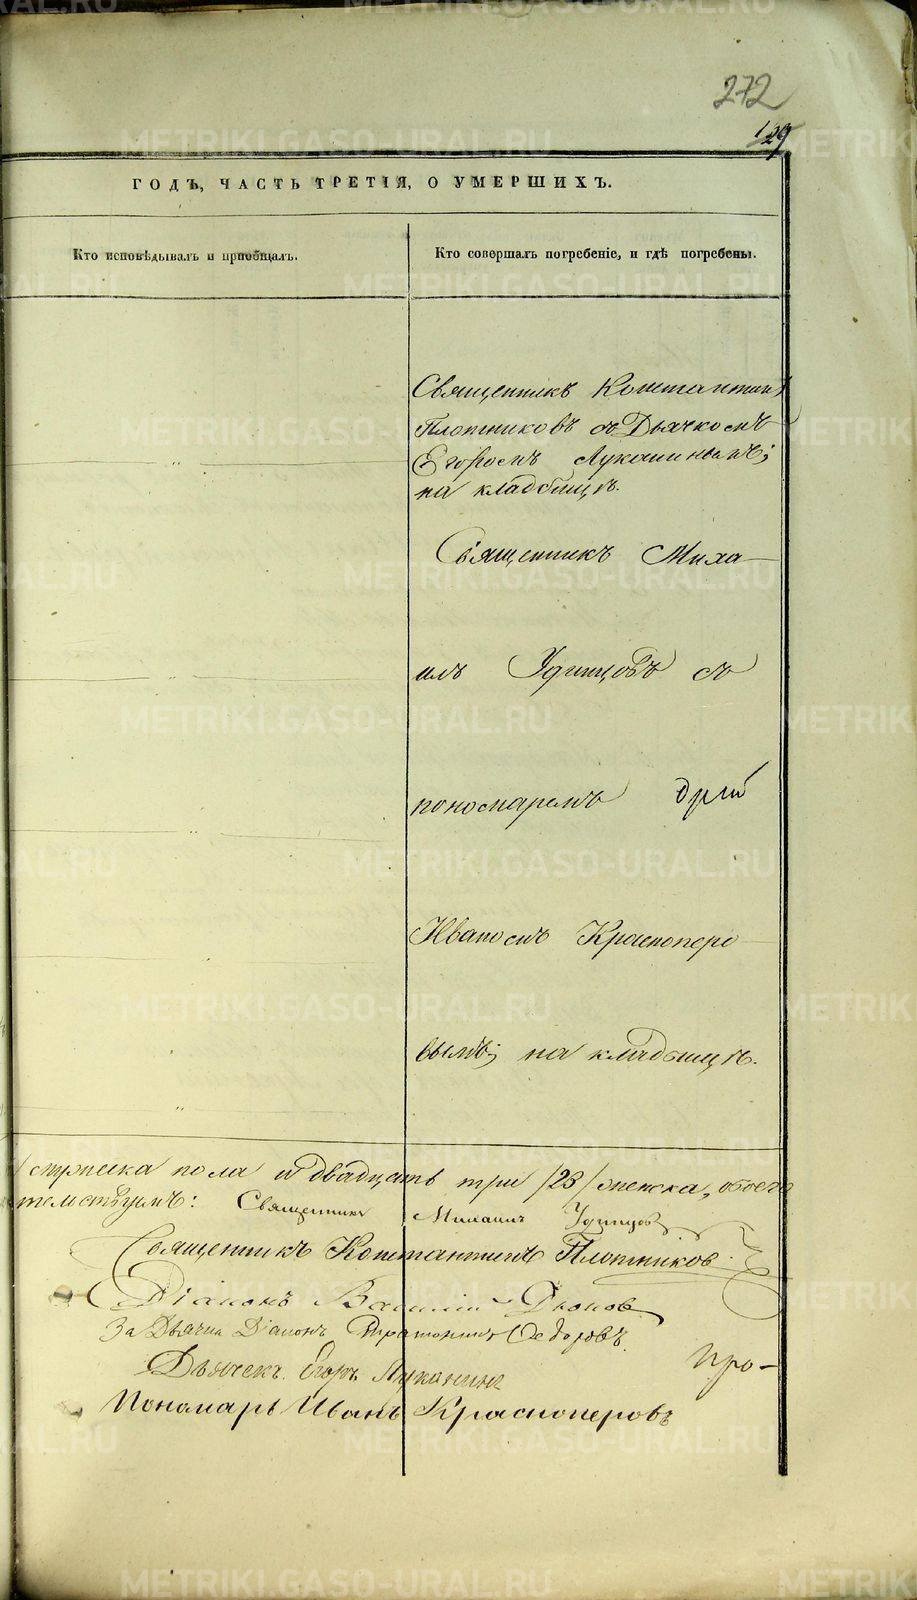 272
129
ГОДЪ, ЧАСТЬ ТРЕТІЯ, О УМЕРШИХЪ.
Кто исповѣдывалъ и пріобщалъ.
Кто совершалъ погребеніе, и гдѣ погребены.
Священникъ Константинъ
Плотниковъ съ Дьячкомъ
Егоромъ Луканинымъ;
на кладбищѣ.
Священникъ Миха-
илъ Удинцовъ съ
пономаремъ
Иваномъ Краснопёро-
вымъ; на кладбищѣ.
мужеска пола и двадцать три /23/ женска, обоего
Священникъ Михаилъ Удинцовъ
Священникъ Константинъ Плотниковъ.
Діаконъ Василій
За Дьячка Діаконъ Ѳедоровъ.
Дьячекъ Егоръ Луканинъ
про-
Пономарь Иванъ Красноперовъ
METRIKI.GASO-URAL.RU